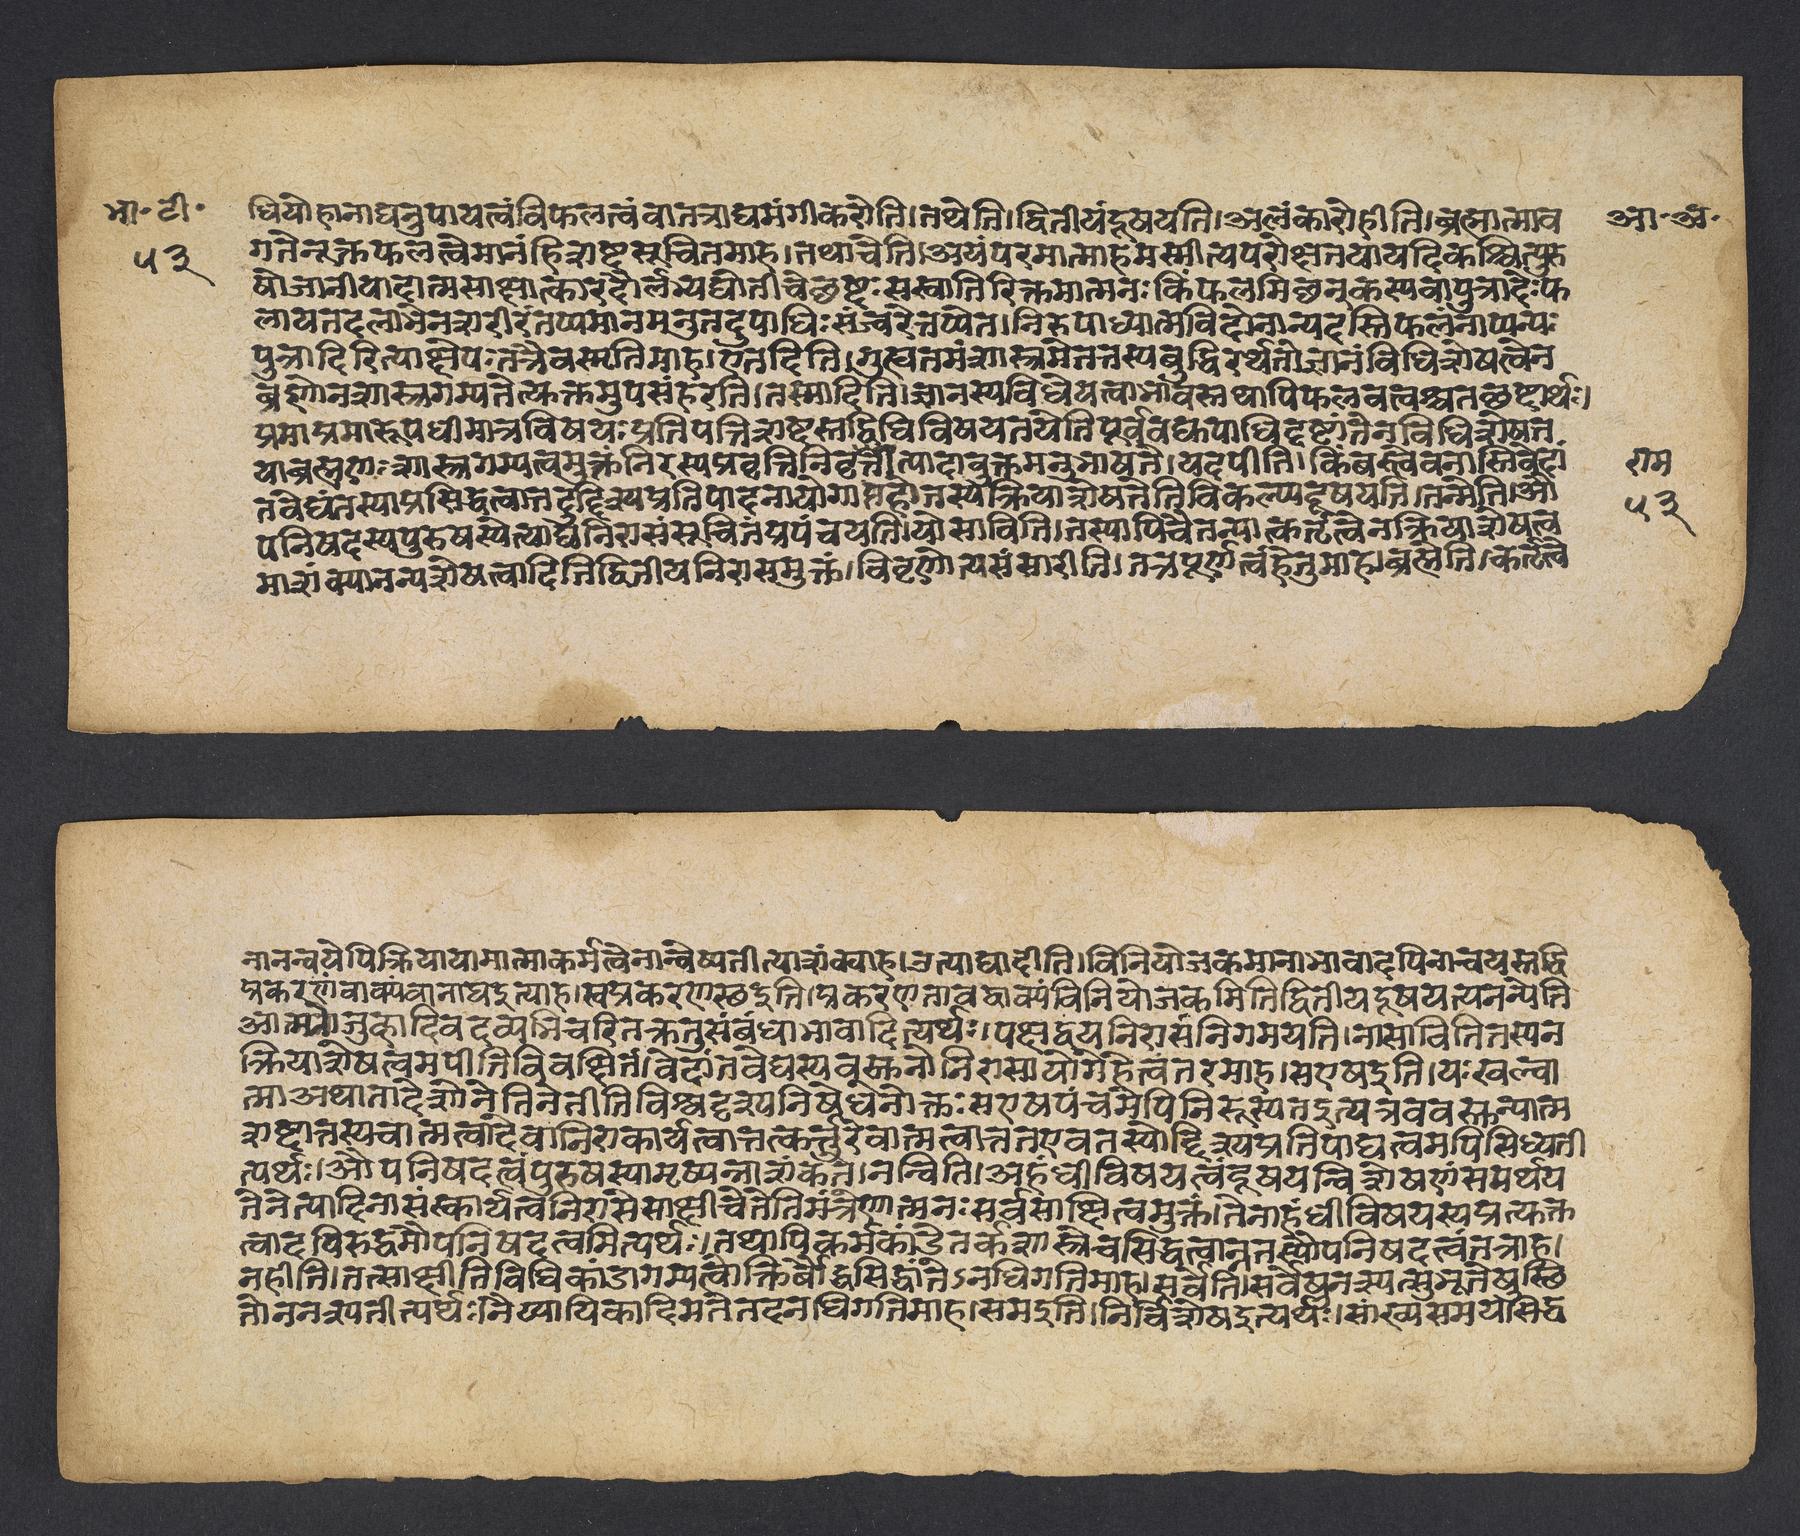 भा॰ टी॰
५३
आ॰ अ॰
धियोहानाद्यनुपायत्वंविफलत्वंवातत्राद्यमंगीकरोति।तथेति।द्वितीयंदूषयति।अलंकारोहीति।ब्रह्मात्माव
गतेनूक्तफलत्वेमानंहिशष्टसूचितमाह।तथाचेति।अयंपरमात्माहमस्मीत्यपरोक्षतयायदिकश्चित्पुरु
षोजानीयादात्मसाक्षात्कारदौर्लभ्यद्योतीचेछष्टःसस्वातिरिक्तमात्मनःकिंफलमिछन्कस्यवापुत्रादेःफ
लायतदलाभेनशरीरंतप्यमानमनुतदुपाधिःसंज्वरेत्तप्येत।निरुपाध्यात्मविदोनान्यदस्तिफलंनाप्यन्यः
पुत्रादिरित्याक्षेपःतत्रैवस्मृतिमाह।एतदिति।गुह्यतमंशास्त्रमेतत्तस्यबुद्धिरर्थतोज्ञानंविधिशेषत्वेन
ब्रह्मणोनशास्त्रगम्यतेत्युक्तमुपसंहरति।तस्मादिति।ज्ञानस्यविधेयत्वाभावस्तथापिफलवत्वश्चतछष्टार्थः।
प्रमाप्रमारूपधीमात्रविषयःप्रतिपत्तिशष्टस्तद्विधिविषयतयेतिपूर्ववद्यूपाधिदृष्टांतेनविधिशेषत
याब्रह्मणःशास्त्रगम्यत्वमुक्तंनिरस्यप्रवृत्तिनिवृत्तीत्यादावुक्तमनुभाषते।यदपीति।किंवस्त्वेवनास्तिवेदां
तवेद्यंतस्याप्रसिद्धत्वात्तदुद्दिश्यप्रतिपादनायोगाद्महोतस्यक्रियाशेषतेतिविकल्प्यदूषयति।तन्नेति।औ
पनिषदस्यपुरुषस्येत्याद्यनिरासंसूचितंप्रपंचयति।योसाविति।तस्यापिचेतन्यात्कर्तृत्वेनक्रियाशेषत्व
माशंक्यानन्यशेषत्वादितिद्वितीयनिरासमुक्तं।विवृणोत्यसंसारीति।तत्रपूर्णत्वंहेतुमाह।ब्रह्मेति।कर्तृत्वे
राम
५३
नानन्वयेपिक्रियायामात्माकर्मत्वेनान्वेष्यतीत्याशंक्याह।उत्पाद्यादीति।विनियोजकमानाभावादपिनान्वयस्तद्धि
प्रकरणंवाक्यंवानाद्यइत्याह।स्वप्रकरणस्थइति।प्रकरणंतावद्वाक्यंविनियोजकमितिद्वितीयंदूषयत्यनन्येति
आत्मनोजुह्वादिवदव्यभिचरितक्रतुसंबंधाभावादित्यर्थः।पक्षद्वयनिरासंनिगमयति।नासावितितस्यन
क्रियाशेषत्वमपीतिविवक्षितं।वेदांतवेद्यस्यवस्तुनोनिरासायोगेहेत्वंतरमाह।सएषइति।यःखल्वा
त्माअथातादेशोनेतिनेतीतिविश्वदृश्यनिषेधेनोक्तःसएषपंचमेपिनिरूप्यंतइत्यत्रववस्तुन्यात्म
शष्टात्तस्यचात्मत्वादेवानिराकार्यत्वात्तत्कर्त्तुरेवात्मत्वात्ततएवतस्योद्दिश्यप्रतिपाद्यत्वमपिसिध्यती
त्यर्थः।औपनिषदत्वंपुरुषस्यामृष्यन्नाशंकते।नन्विति।अहंधीविषयत्वंदूषयन्विशेषणंसमर्थय
तेनेत्यादिनासंस्कार्यत्वनिरासेसाक्षीचेतेतिमंत्रेणात्मनःसर्वसाक्षित्वमुक्तं।तेनाहंधीविषयस्यप्रत्युक्त
त्वादविरुद्धमौपनिषदत्वमित्यर्थः।तथापिकर्मकांडेतर्कशास्त्रेचसिद्धत्वान्नतस्यौपनिषदत्वंतत्राह।
नहीति।तत्साक्षीतिविधिकांडागम्यत्वोक्तिर्बौद्धसिद्धांतेऽनधिगतिमाह।सर्वेति।सर्वेषुनश्यत्सुभूतेषुस्थि
तोननश्यतीत्यर्थः।नैय्यायिकादिमतेतदनधिगतिमाह।समइति।निर्विशेषइत्यर्थः।सांख्यसमयेसिद्ध